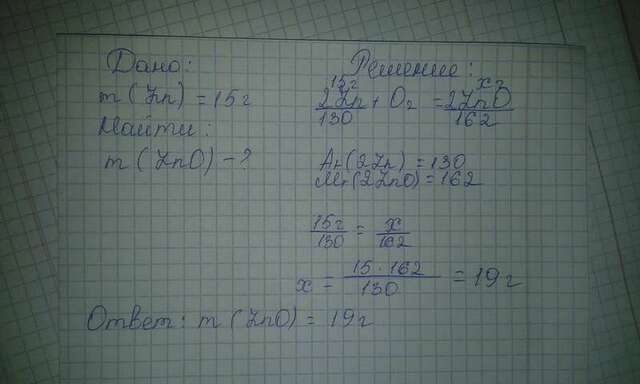 Дано:
m(Zn) = 15г
Найти:
m(ZnO) - ?
Решение:
15г xг
2Zn + O₂ = 2ZnO
130 162
Ar(2Zn) = 130
Mr(2ZnO) = 162
15г/130 = x/162
x = 15 · 162/130 = 19г
Ответ: m(ZnO) = 19г